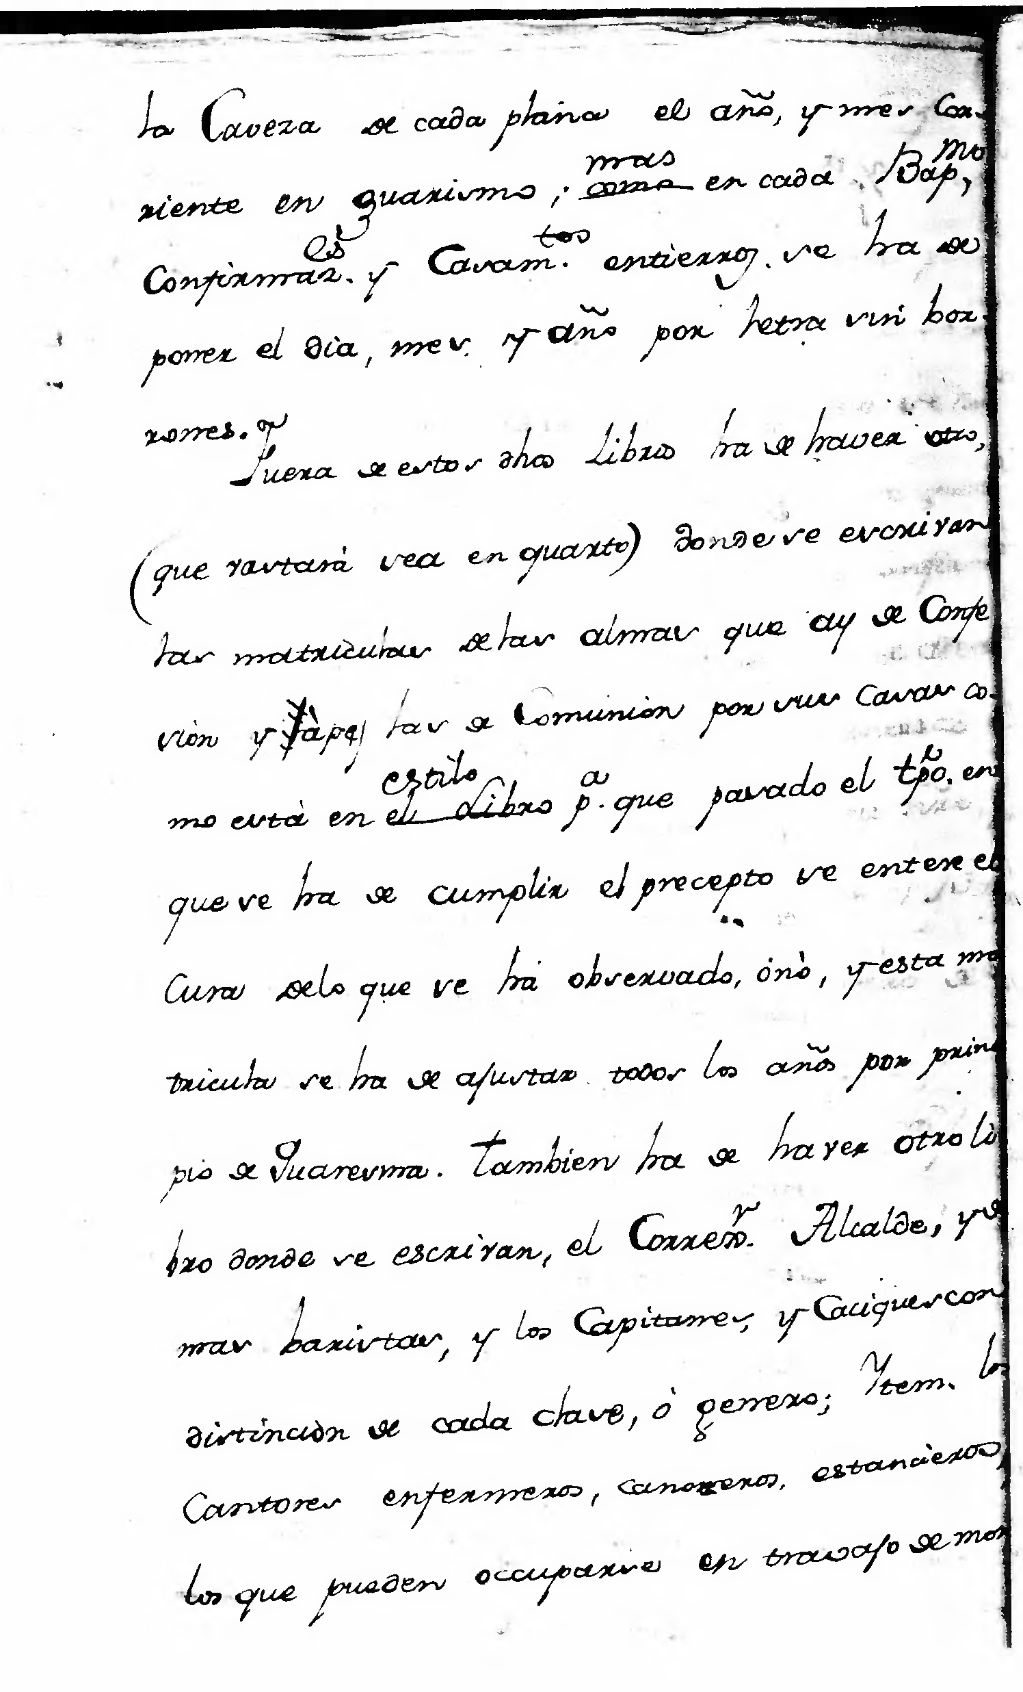 la Caveza de cada plana el año, y mes Cor-
mas mo
riente en guarismo; como en cada Bap,
es tos
Confirmaz. y Casam. entierros se ha de
poner el dia, mes y año por letra sin bor-
rones.
Fuera de estos dhos Libros ha de haver otro,
(que vastará sea en quarto) donde se escrivan
las matriculas de las almas que ay de Confe
sion y las de Comunion por sus Casas co-
estilo a e
mo està en el Libro p. que pasado el tpo. en
que se ha de cumplir el precepto se entere el
Cura delo que se há observado, ònò, y esta ma
tricula se ha de ajustar todos los años por princi
pio de Quaresma. Tambien ha de haver otro li
r
bro donde se escrivan, el Correxo. Alcalde, y de
mas baristas, y los Capitanes, y Caciques con
distinciòn de cada clase, ò genero; Ytem. los
Cantores enfermeros, canoeros, estancieros,
los que pueden occuparse en travajo de mon